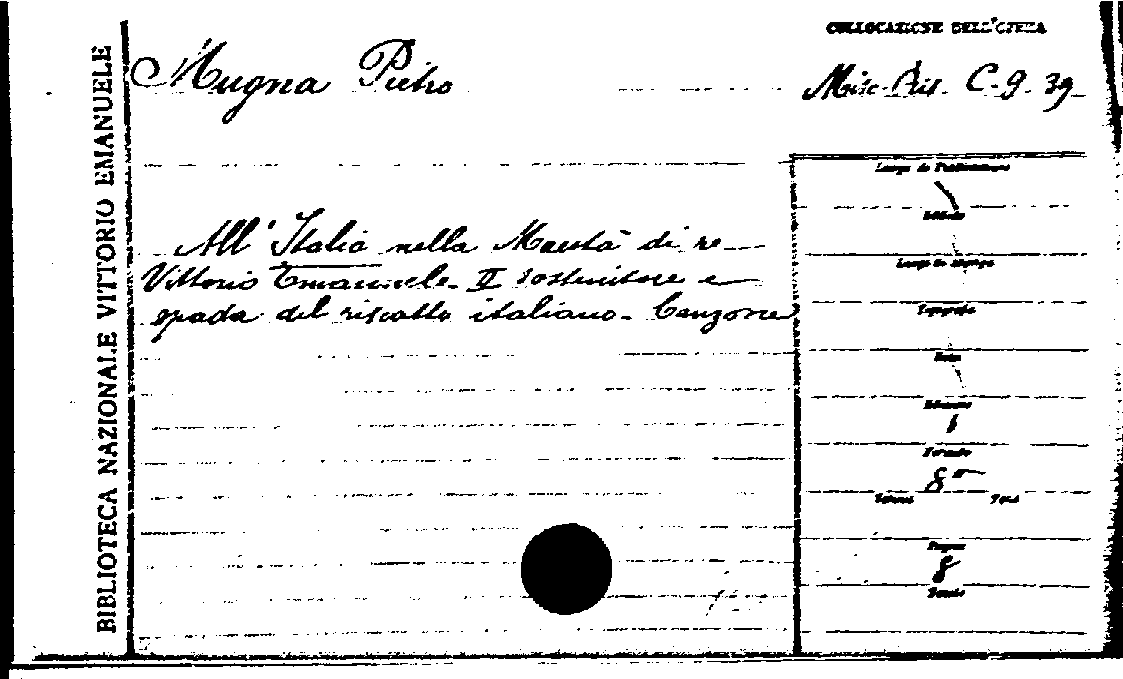 BIBLIOTECA NAZIONALE VITTORIO EMANUELE
COLLOCAZIONE DELL'OPERA
Mugna Pietro
Misc. Ris. C-9. 39
All' Italia nella Maestà di re
Vittorio Emanuele II sostenitore e
spada del riscatto italiano. Canzone
Luogo di Pubblicazione
Editore
Luogo di stampa
Tipografia
Data
Edizione
1
Formato
8°
Volumi Tomi
Pagine
8